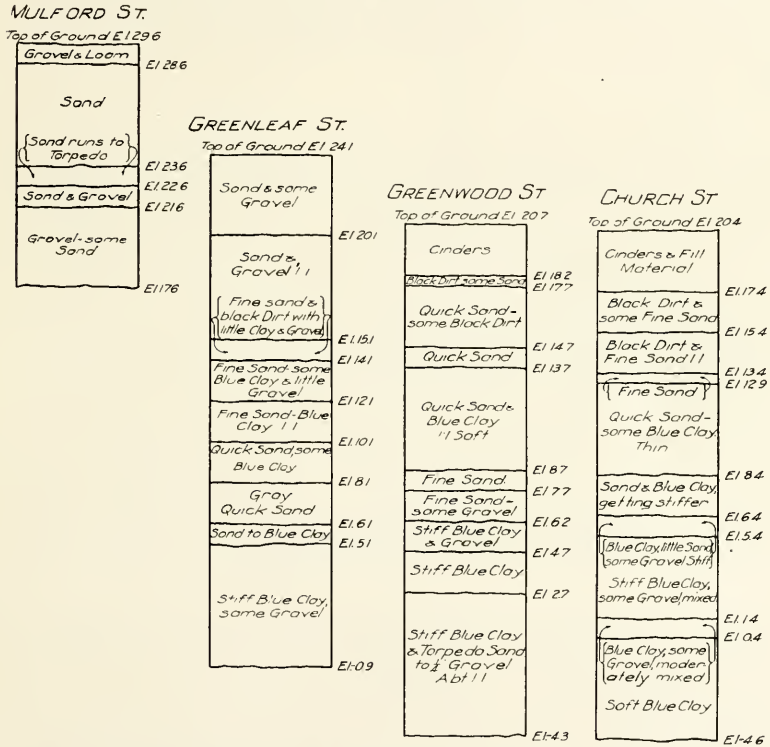 MULFORD ST.
Top of Ground El 29.6
Gravel & Loam
El 28.6
Sand
Sand runs to
Torpedo
El 23.6
El 22.6
Sand & Gravel
El 21.6
Gravel-some
Sand
El 17.6
GREENLEAF ST.
Top of Ground El 24.1
Sand & some
Gravel
El 20.1
Sand &
Gravel 1:1
Fine sand &
black Dirt with
little Clay & Gravel
El. 15.1
El 14.1
Fine Sand-some
Blue Clay & little
Gravel
El 12.1
Fine Sand-Blue
Clay 1:1
El. 10.1
Quick Sand, some
Blue Clay
El 8.1
Gray
Quick Sand
El. 6.1
Sand to Blue Clay
El. 5.1
Stiff Blue Clay,
some Gravel
El-0.9
GREENWOOD ST
Top of Ground El 20.7
Cinders
El 18.2
Black Dirt some Sand
El 17.7
Quick Sand-
some Black Dirt
El 14.7
Quick Sand
El 13.7
Quick Sand &
Blue Clay
1:1 Soft
El 8.7
Fine Sand
El 7.7
Fine Sand-
some Gravel
El. 6.2
Stiff Blue Clay
& Gravel
El 4.7
Stiff Blue Clay
El 2.7
Stiff Blue Clay
& Torpedo Sand
to ½" Gravel
Abt 1:1
El-4.3
CHURCH ST
Top of Ground El 20.4
Cinders & Fill
Material
El. 17.4
Black Dirt &
some Fine Sand
El 15.4
Black Dirt &
Fine Sand 1:1
El 13.4
El 12.9
Fine Sand
Quick Sand-
some Blue Clay,
Thin
El 8.4
Sand & Blue Clay,
getting stiffer
El. 6.4
El. 5.4
Blue Clay, little Sand,
some Gravel Stiff
Stiff Blue Clay,
some Gravel, mixed
El. 1.4
El 0.4
Blue Clay, some
Gravel, moder-
ately mixed
Soft Blue Clay
El-4.6